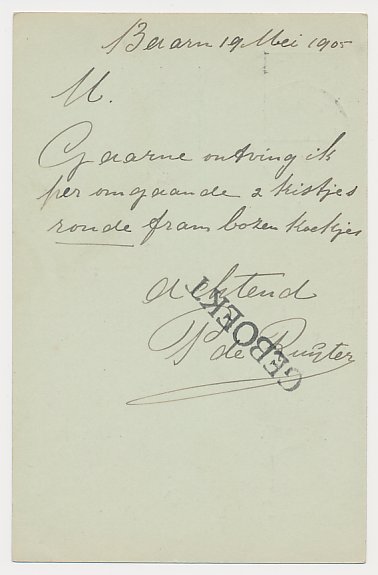 Baarn 19 Mei 1905
M.
Gaarne ontving ik
per omgaande 2 kistjes
ronde frambozen koekjes
Achtend
P de Ruijter
GEBOEKT